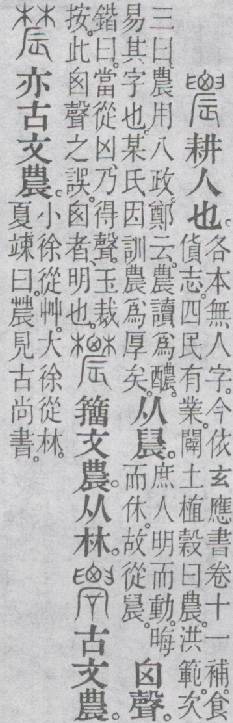 耕人也。各本無人字。今依玄應書卷十一補。食
貨志。四民有業。闢土植穀曰農。洪範次
三曰農用八政。鄭云。農讀爲醲。
易其字也。某氏因訓農爲厚矣。
从晨。庶人明而動。晦
而休。故從晨。
囟聲。
鍇曰。當從凶乃得聲。玉裁
按。此囱聲之誤。囱者、明也。
籒文農。从林。
古文農。
亦古文農。小徐從艸。大徐從林。
夏竦曰。農見古尚書。